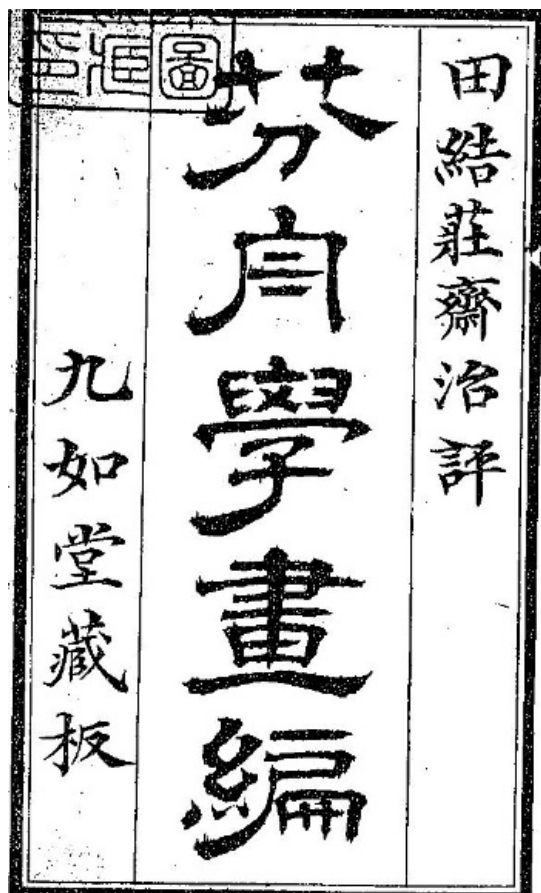 田結莊齋治評
芥舟學畫編
九如堂藏板
圖